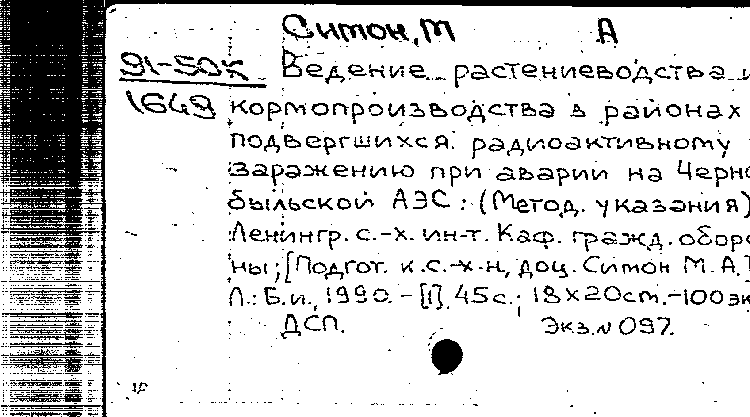 Симон, М А
91-50К Ведение растениеводства и
1649 кормопроизводства в районах
подвергшихся радиоактивному
заражению при аварии на Черно
быльской АЭС : (Метод. указания)
Ленингр. с.-х. ин-т. Каф. гражд. оборо
ны; [Подгот. к.с.-х-н, доц. Симон М.А.]
Л.: Б.и., 1990. - [1], 45 с.; 18х20cm. - 100 эк
ДСП. Экз.N 097.